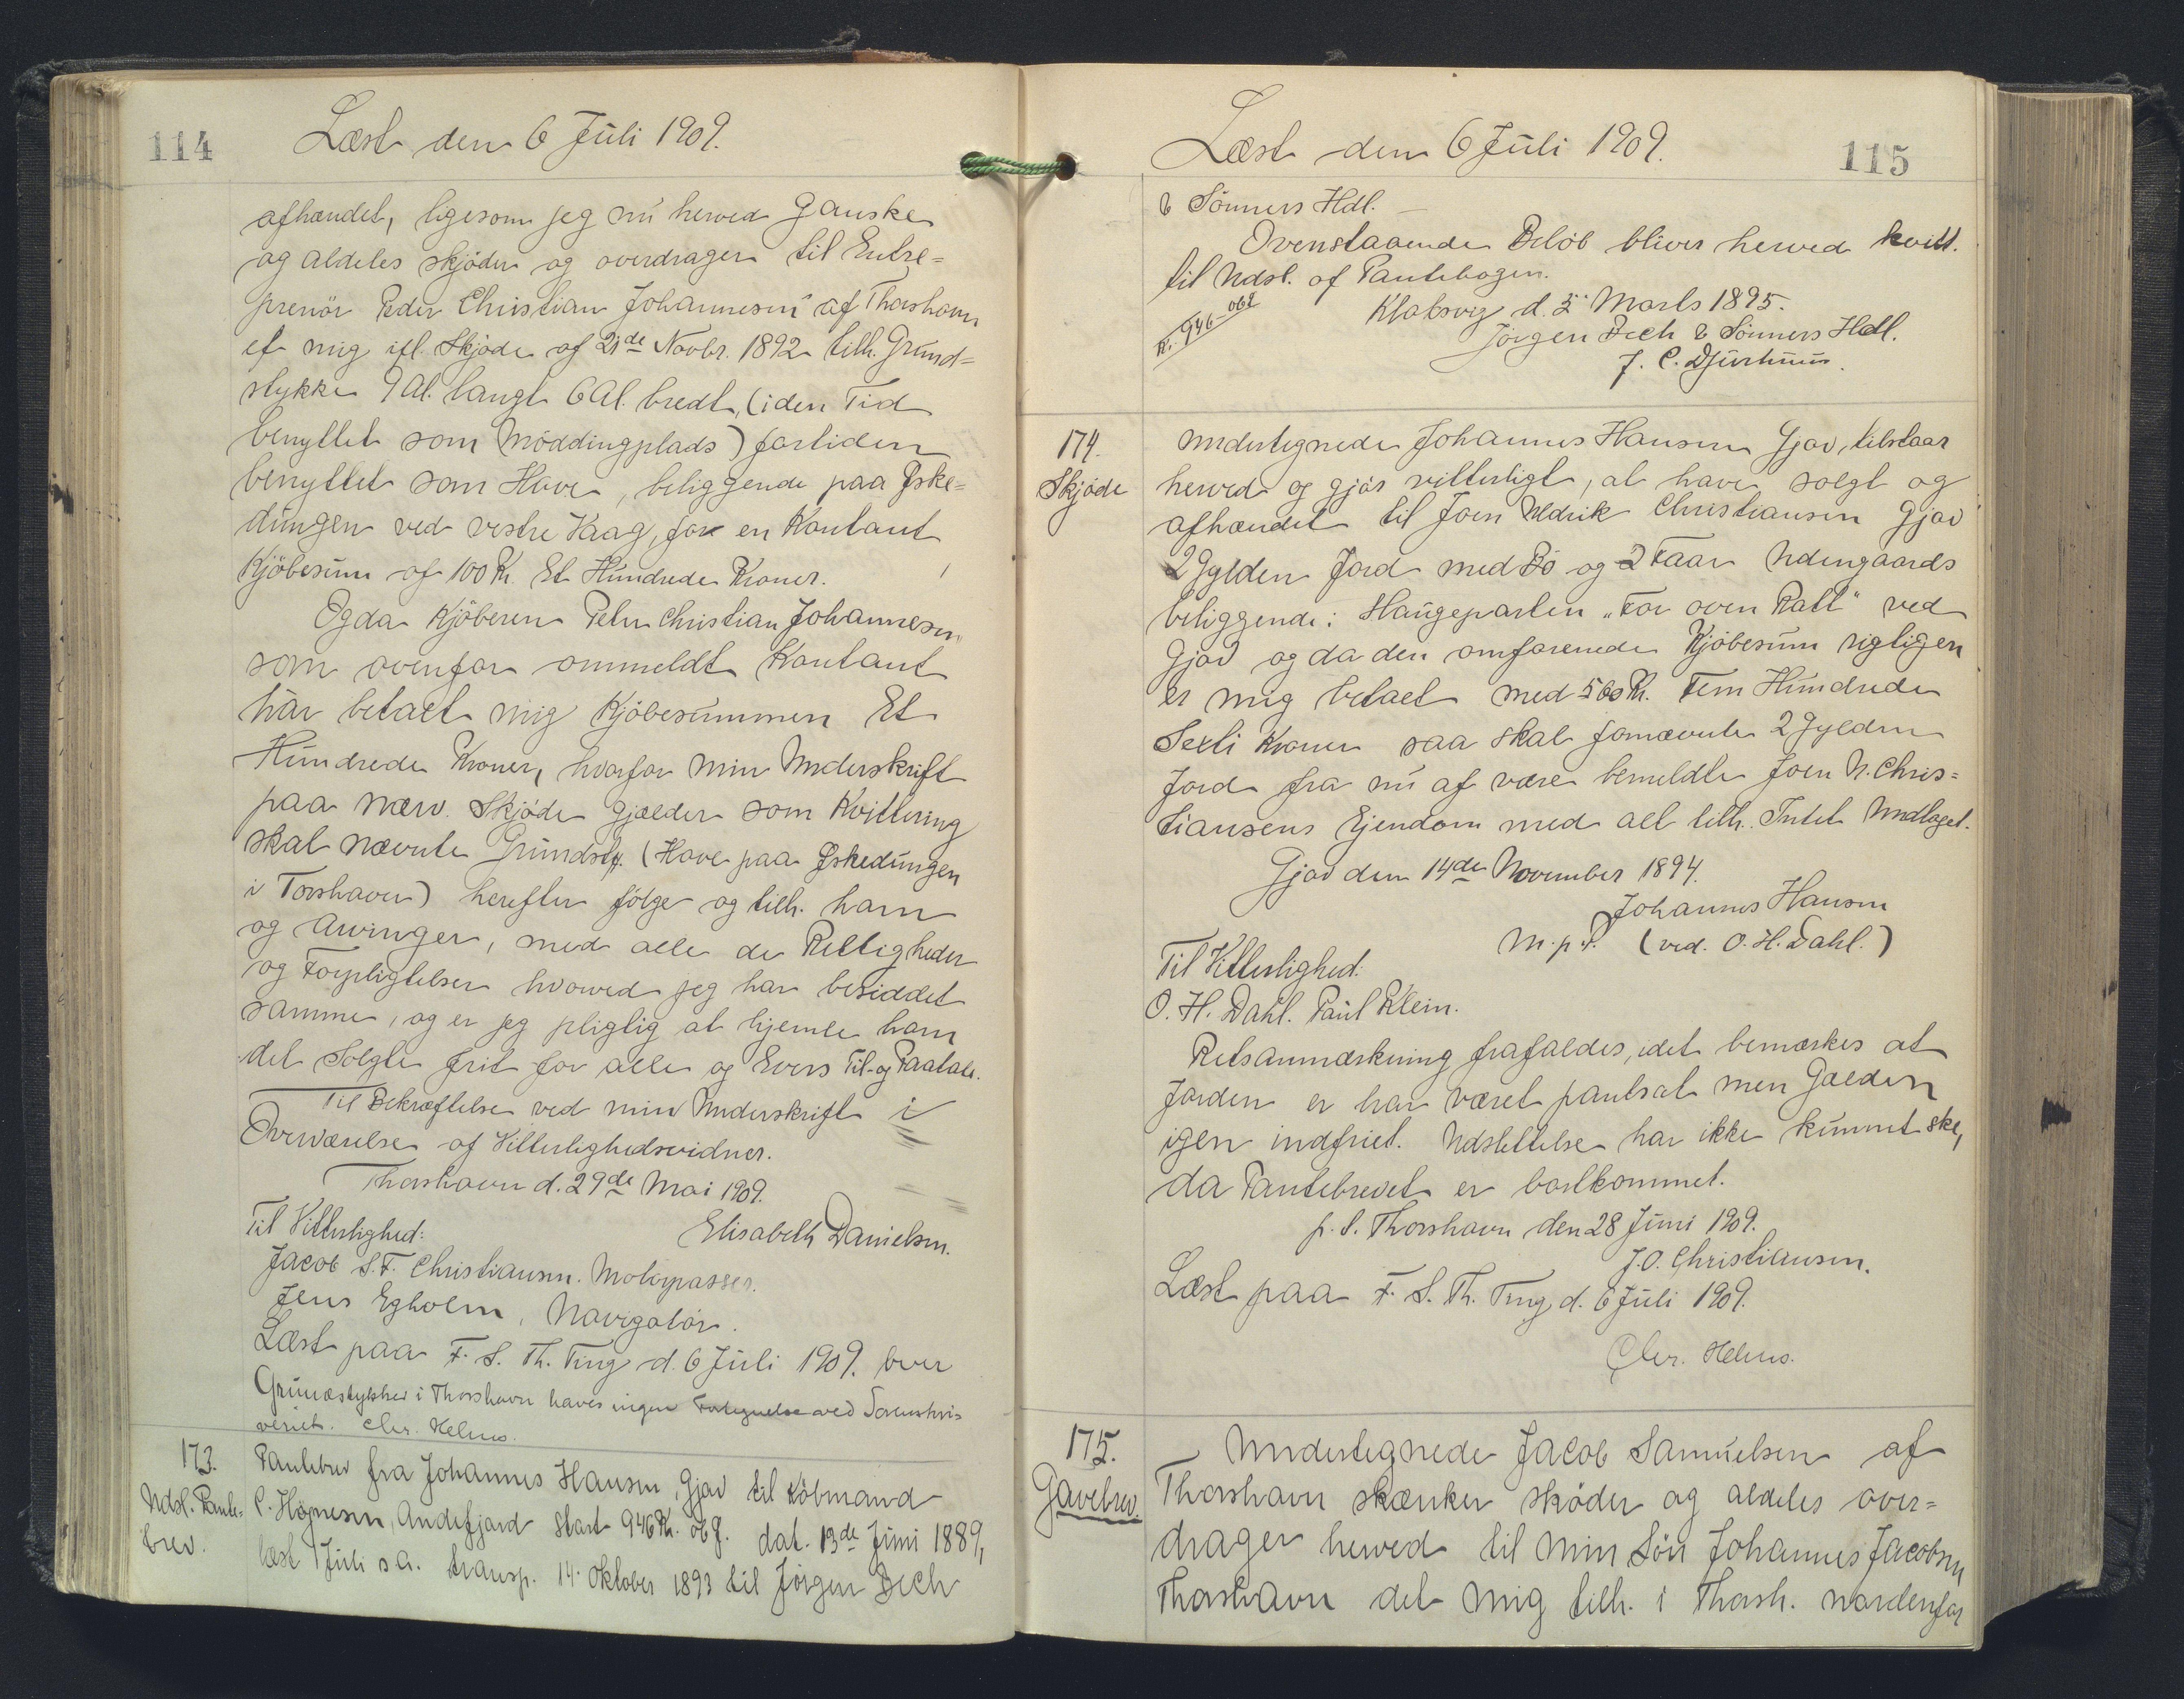 114
Læst den 6 Juli 1909.
afhændet, ligesom jeg nu herved ganske
og aldeles skjøder og overdrager til Entre=
prenör Peder Christian Johannesen af Thorshavn
et mig ifl. Skjøde af 21de Novbr. 1892 tilh. Grund=
stykke 9 Al. langt 6 Al. bredt, (i den Tid
benyttet som Möddingplads) fortiden
benyttet som Have, beliggende paa Øske=
dungen ved vestre Vaag, for en Kontant
Kjöbesum af 100 Kr. Et Hundrede Kroner.
Og da Kjöberen Peter Christian Johannesen
som ovenfor ommeldt Kontant
har betalt mig Kjöbesummen Et
Hundrede Kroner, hvorfor min Underskrift
paa nærv. Skjøde gjælder som Kvittering
skal nævnte Grundsty. (Have paa Øskedungen
i Torshavn) herefter fölge og tilh. ham
og Arvinger, med alle de Rettigheder
og Forpligtelser hvorved jeg har besiddet
samme, og er jeg pligtig at hjemle ham
det Solgte frit for alle og Evers Til- og Paatale.
Til Bekræftelse ved min Underskrift i
Overværelse af Vitterlighedsvidner.
Thorshavn d. 29de Mai 1909.
Til Vitterlighed: Elisabeth Danielsen.
Jacob S. F. Christiansen. Motorpasser.
Jens Egholm, Navigatör.
Læst paa F. S. Th. Ting d. 6 Juli 1909. over
Grundstykker i Thorshavn haves ingen Fortegnelse ved Sorenskri-
veriet. Chr. Helms.
173.
Udsl. Pante-
brev.
Pantebrev fra Johannes Hansen, Gjov til Köbmand
C. Högnesen, Andefjord stort 946 Kr. obl. dat. 13de Juni 1889,
læst 1 Juli s. A. transp. 14. Oktober 1893 til Jörgen Bech
Læst den 6 Juli 1909.
115
& Sönners Hdl.
Ovenstaaende Belöb bliver herved kvitt.
til Udsl. af Pantebogen.
K. 946 obl
Klaksvig d. 5. Marts 1895.
Jörgen Bech & Sönners Hdl.
J. C. Djurhuus.
174.
Skjøde
Undertegnede Johannes Hansen Gjov, tilstaar
herved og gjör vitterligt, at have solgt og
afhændet til Joen Uldrik Christiansen Gjov
2 Gylden Jord med Bö og 2 Faar Udengaards
beliggende i Haugeparten "For oven Ratt" ved
Gjov og da den omforenede Kjöbesum rigtigen
er mig betalt med 560 Kr. Fem Hundrede
Sexti Kroner saa skal fornævnte 2 Gylden
Jord fra nu af være bemeldte Joen U. Chris=
tiansens Ejendom med alt tilh. Intet undtaget.
Gjov den 14de November 1894.
Johannes Hansen
m. p. P. (ved. O. H. Dahl.)
Til Vitterlighed:
O. H. Dahl. Paul Klein.
Retsanmærkning frafaldes, idet bemærkes at
Jorden er har været pantsat men Gælden
igen indfriet. Udslettelse har ikke kunnet ske,
da Pantebrevet er bortkommet.
p. t. Thorshavn den 28 Juni 1909.
J. O. Christiansen.
Læst paa F. S. Th. Ting, d. 6 Juli 1909.
Chr. Helms.
175.
Gavebrev.
Undertegnede Jacob Samuelsen af
Thorshavn skænker sköder og aldeles over=
drager herved til min Sön Johannes Jacobsen
Thorshavn det mig tilh. i Thorsh. nordenfor